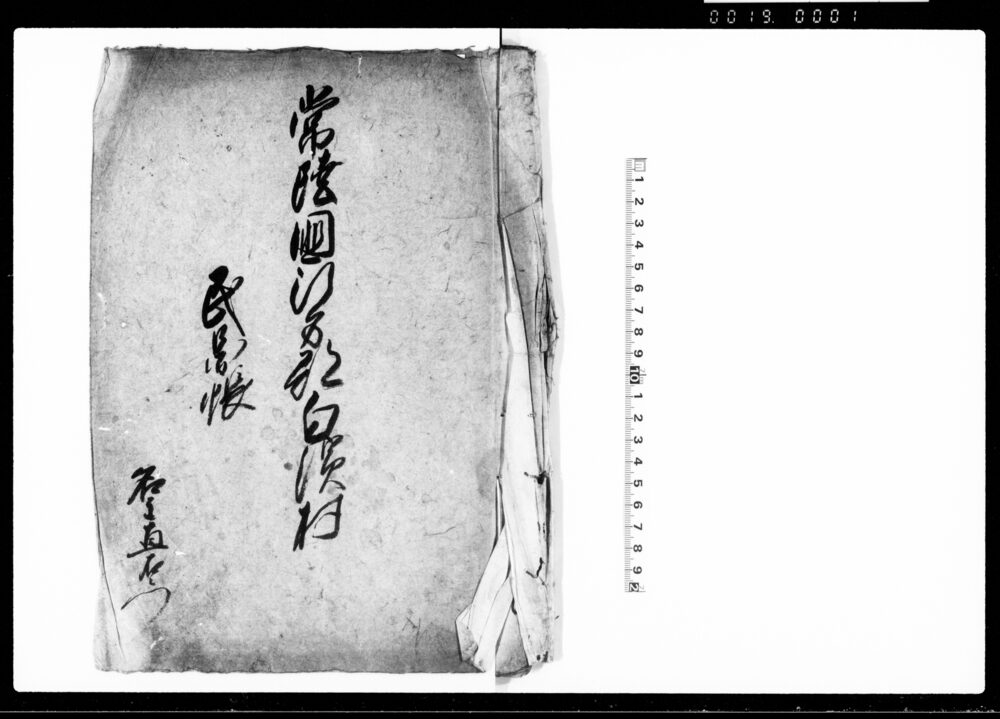 0019. 0001
常陸國行方郡白濱村
民 帳
名主直右衛門
1 2 3 4 5 6 7 8 9 10 1 2 3 4 5 6 7 8 9 2